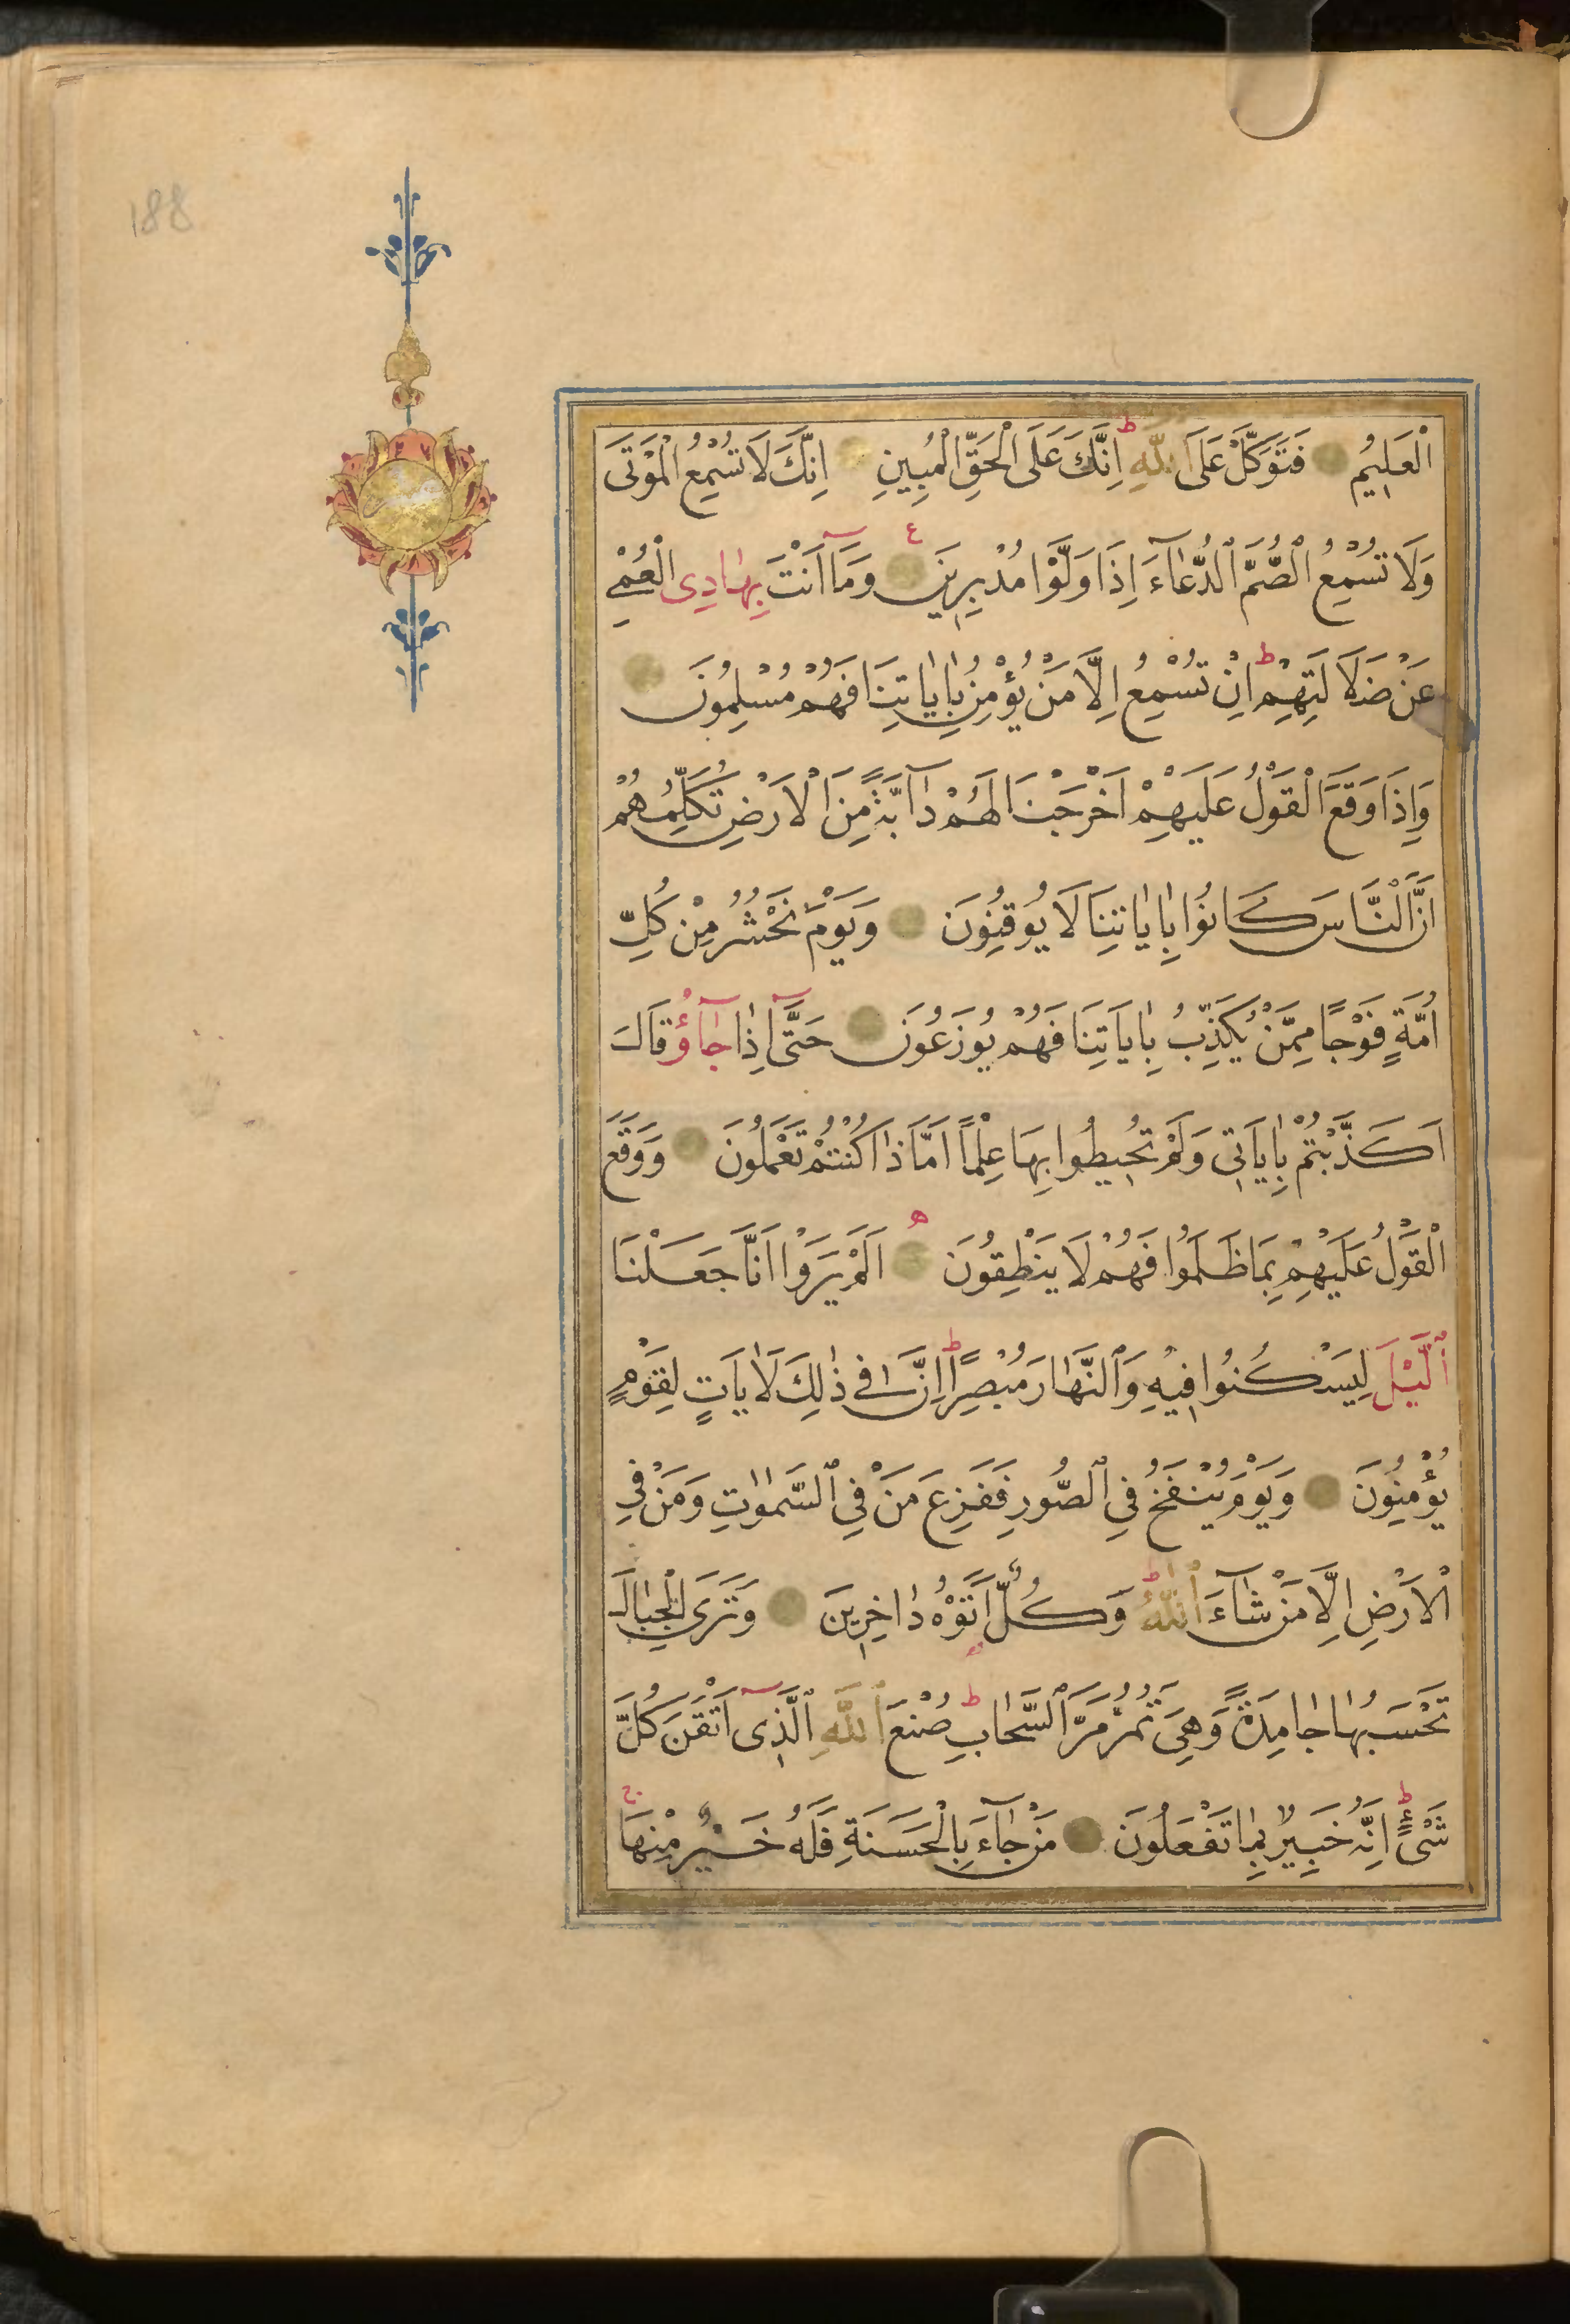 188
الْعَلِيمُ فَتَوَكَّلْ عَلَى ٱللّٰهِ ط اِنَّكَ عَلَى الْحَقِّ الْمُبِينِ اِنَّكَ لَا تُسْمِعُ الْمَوْتَى
وَلَا تُسْمِعُ ٱلصُّمَّ ٱلدُّعَاءَ اِذَا وَلَّوْا مُدْبِرِينَ ع وَمَآ اَنْتَ بِهَادِى الْعُمْىِ
عَنْ ضَلَالَتِهِمْ ط اِنْ تُسْمِعُ اِلَّا مَنْ يُؤْمِنُ بِاٰيَاتِنَا فَهُمْ مُسْلِمُونَ
وَاِذَا وَقَعَ الْقَوْلُ عَلَيْهِمْ اَخْرَجْنَا لَهُمْ دَآبَّةً مِنَ الْاَرْضِ تُكَلِّمُهُمْ
اَنَّ النَّاسَ كَانُوا بِاٰيَاتِنَا لَا يُوقِنُونَ وَيَوْمَ نَحْشُرُ مِنْ كُلِّ
اُمَّةٍ فَوْجًا مِمَّنْ يُكَذِّبُ بِاٰيَاتِنَا فَهُمْ يُوزَعُونَ حَتَّىٓ اِذَا جَآؤُ قَالَ
اَكَذَّبْتُمْ بِاٰيَاتِى وَلَمْ تُحِيطُوا بِهَا عِلْمًا اَمَّا ذَا كُنْتُمْ تَعْمَلُونَ وَوَقَعَ
الْقَوْلُ عَلَيْهِمْ بِمَا ظَلَمُوا فَهُمْ لَا يَنْطِقُونَ ه اَلَمْ يَرَوْا اَنَّا جَعَلْنَا
ٱلَّيْلَ لِيَسْكُنُوا فِيهِ وَٱلنَّهَارَ مُبْصِرًا ط اِنَّ فِى ذٰلِكَ لَاٰيَاتٍ لِقَوْمٍ
يُؤْمِنُونَ وَيَوْمَ يُنْفَخُ فِى ٱلصُّورِ فَفَزِعَ مَنْ فِى ٱلسَّمٰوَاتِ وَمَنْ فِى
الْاَرْضِ اِلَّا مَنْ شَآءَ ٱللّٰهُ ط وَكُلٌّ اَتَوْهُ دَاخِرِينَ وَتَرَى الْجِبَالَ
تَحْسَبُهَا جَامِدَةً وَهِىَ تَمُرُّ مَرَّ ٱلسَّحَابِ ط صُنْعَ ٱللّٰهِ ٱلَّذِىٓ اَتْقَنَ كُلَّ
شَىْءٍ ط اِنَّهُ خَبِيرٌ بِمَا تَفْعَلُونَ مَنْ جَآءَ بِالْحَسَنَةِ فَلَهُ خَيْرٌ مِنْهَا ج